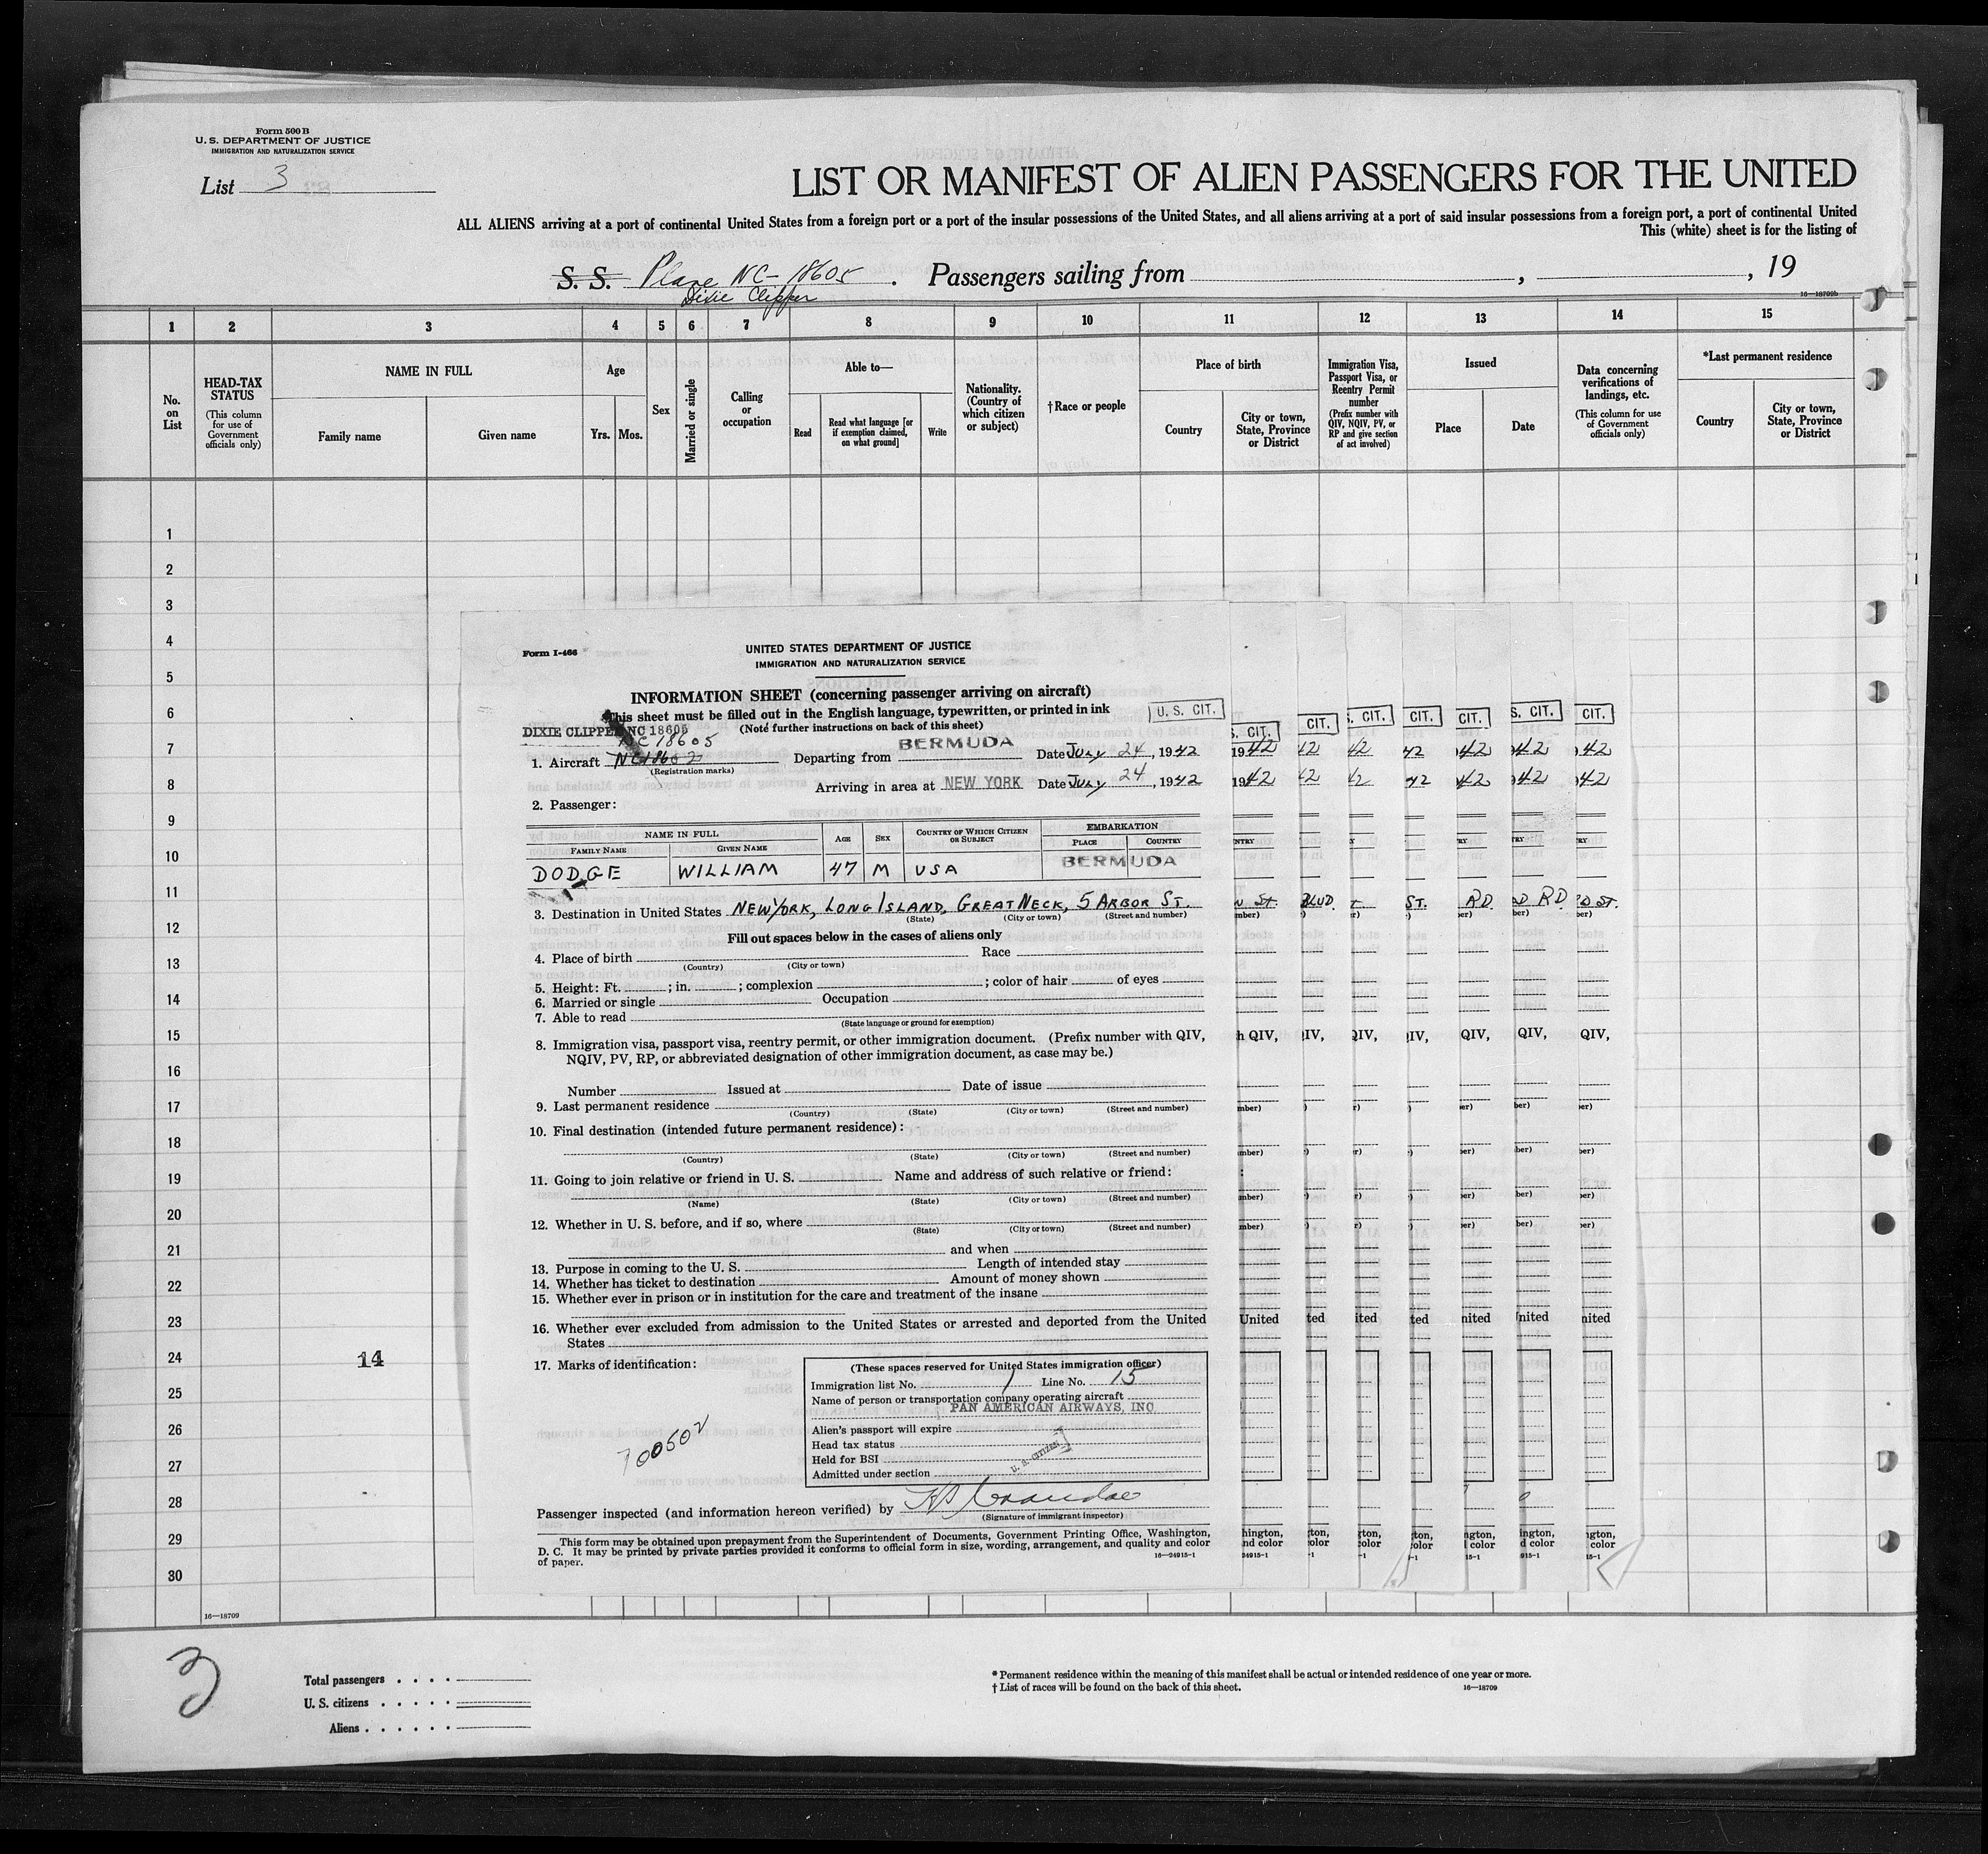 Form 500 B
U. S. DEPARTMENT OF JUSTICE
IMMIGRATION AND NATURALIZATION SERVICE
List 3
LIST OR MANIFEST OF ALIEN PASSENGERS FOR THE UNITED
ALL ALIENS arriving at a port of continental United States from a foreign port or a port of the insular possessions of the United States, and all aliens arriving at a port of said insular possessions from a foreign port, a port of continental United
This (white) sheet is for the listing of
S. S. Plane NC-18605. Passengers sailing from , , 19
Dixie Clipper
16—18709b
1 2 3 4 5 6 7 8 9 10 11 12 13 14 15
No. on List
HEAD-TAX STATUS
(This column for use of Government officials only)
NAME IN FULL
Family name
Given name
Age
Yrs. Mos.
Sex
Married or single
Calling or occupation
Able to—
Read
Read what language [or if exemption claimed, on what ground]
Write
Nationality. (Country of which citizen or subject)
†Race or people
Place of birth
Country
City or town, State, Province or District
Immigration Visa, Passport Visa, or Reentry Permit number
(Prefix number with QIV, NQIV, PV, or RP and give section of act involved)
Issued
Place
Date
Data concerning verifications of landings, etc.
(This column for use of Government officials only)
*Last permanent residence
Country
City or town, State, Province or District
1
2
3
4
5
6
7
8
9
10
11
12
13
14
15
16
17
18
19
20
21
22
23
24 14
25
26
27
28
29
30
16—18709
Form I-466
UNITED STATES DEPARTMENT OF JUSTICE
IMMIGRATION AND NATURALIZATION SERVICE
INFORMATION SHEET (concerning passenger arriving on aircraft)
This sheet must be filled out in the English language, typewritten, or printed in ink
(Note further instructions on back of this sheet)
U. S. CIT.
DIXIE CLIPPER NC 18605
NC 18605
1. Aircraft NC18602 Departing from BERMUDA Date July 24, 1942
(Registration marks)
Arriving in area at NEW YORK Date July 24, 1942
2. Passenger:
NAME IN FULL
FAMILY NAME GIVEN NAME AGE SEX COUNTRY OF WHICH CITIZEN OR SUBJECT EMBARKATION PLACE COUNTRY
DODGE WILLIAM 47 M USA BERMUDA
3. Destination in United States NEW YORK, LONG ISLAND, GREAT NECK, 5 ARBOR ST.
(State) (City or town) (Street and number)
Fill out spaces below in the cases of aliens only
4. Place of birth Race
(Country) (City or town)
5. Height: Ft. ; in. ; complexion ; color of hair of eyes
6. Married or single Occupation
7. Able to read
(State language or ground for exemption)
8. Immigration visa, passport visa, reentry permit, or other immigration document. (Prefix number with QIV,
NQIV, PV, RP, or abbreviated designation of other immigration document, as case may be.)
Number Issued at Date of issue
9. Last permanent residence
(Country) (State) (City or town) (Street and number)
10. Final destination (intended future permanent residence):
(Country) (State) (City or town) (Street and number)
11. Going to join relative or friend in U. S. Name and address of such relative or friend:
(Name) (State) (City or town) (Street and number)
12. Whether in U. S. before, and if so, where
(State) (City or town) (Street and number)
and when
13. Purpose in coming to the U. S. Length of intended stay
14. Whether has ticket to destination Amount of money shown
15. Whether ever in prison or in institution for the care and treatment of the insane
16. Whether ever excluded from admission to the United States or arrested and deported from the United
States
17. Marks of identification:
(These spaces reserved for United States immigration officer)
Immigration list No. 1 Line No. 15
Name of person or transportation company operating aircraft
PAN AMERICAN AIRWAYS, INC
Alien's passport will expire
Head tax status
Held for BSI
Admitted under section
U. S. citizen
700502
Passenger inspected (and information hereon verified) by
(Signature of immigrant inspector)
This form may be obtained upon prepayment from the Superintendent of Documents, Government Printing Office, Washington,
D. C. It may be printed by private parties provided it conforms to official form in size, wording, arrangement, and quality and color
of paper.
16—24915-1
3
Total passengers
U. S. citizens
Aliens
* Permanent residence within the meaning of this manifest shall be actual or intended residence of one year or more.
† List of races will be found on the back of this sheet.
16—18709